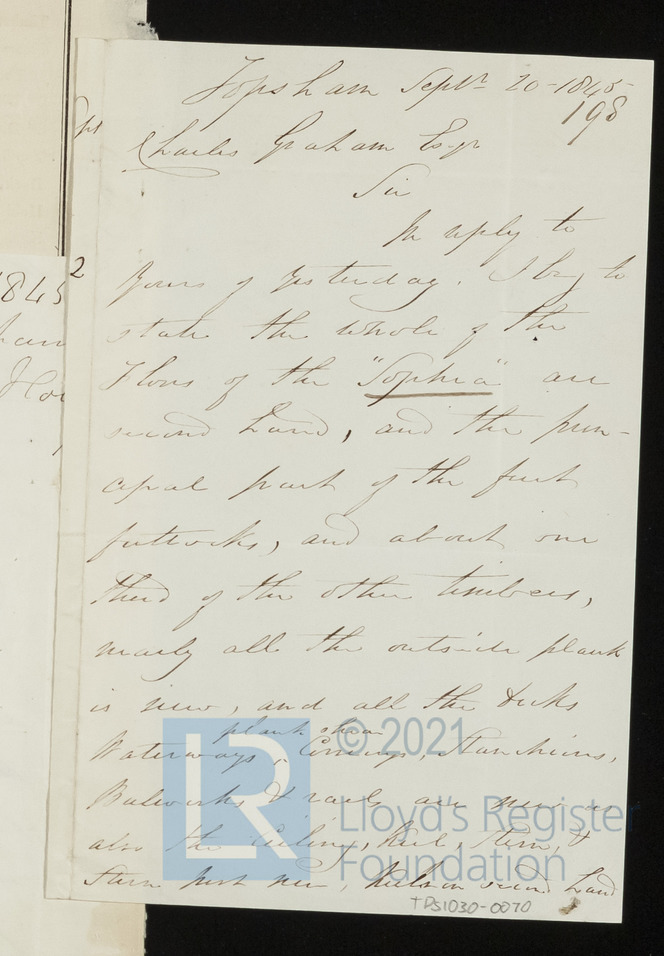 Topsham Septr 20-1845-
198
Charles Graham Esqr
Sir
In reply to
yours of yesterday. I beg to
state the whole of the
Floors of the "Sophia" are
second hand, and the prin-
cipal part of the first
futtocks, and about one
third of the other timbers,
nearly all the outside plank
is new, and all the decks
plank shear
Waterways, Comings, Stanchions,
Bulwarks & rails are new as
also the Ceiling, Keel, Stem, &
Stern post new, Keelson second hand
TPS1030-0070
2
1845
LR
© 2021
Lloyd's Register
Foundation